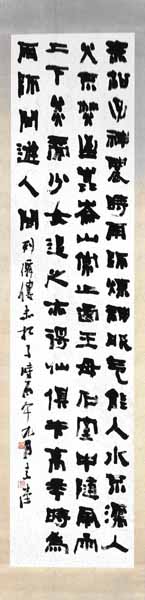 赤松子神農時雨師煉神服气能入水不濡入
火不焚至崑崙山常止西王母石室中隨風雨
上下炎帝少女追之亦得仙俱去高辛時為
雨師間遊人間 列仙傳赤松子